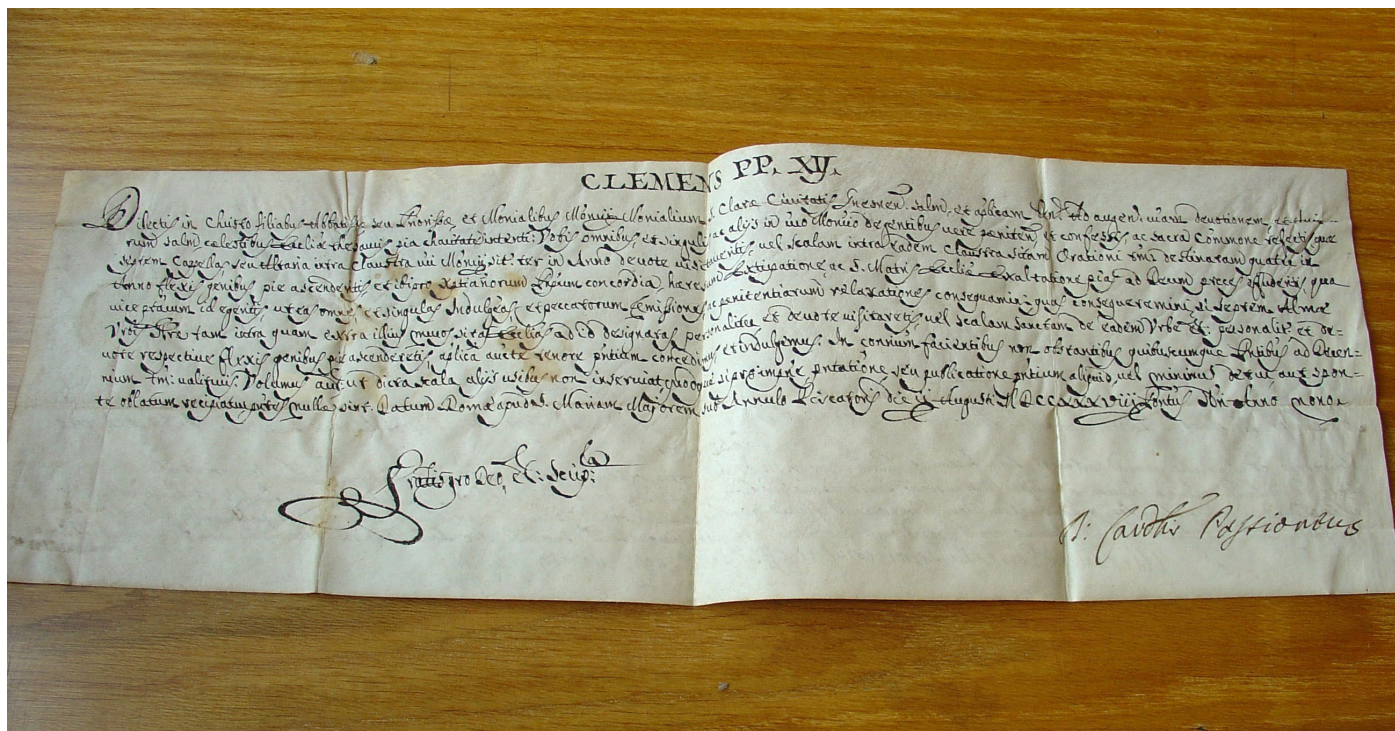 CLEMENS PP. XIJ.
Dilectis in Christo filiabus Abbatissæ seu Priorissæ et Monialibus Monrij Monialium S. Claræ Civitatis salm, et aplicam ad augen:
rum salm cælestibus Ecclie thesauris pia charitate intenti: Vobis omnibus et singulis ac alijs in Monrio degentibus vere peniten et confessis, ac sacra Commone refectis que
septem Cappellas seu Altaria intra claustra Monrij sit: ter in Anno devote vel scalam intra eadem claustra sitam Orationi destinatam quater in
Anno flexis genibus pie ascenderitis et ibi pro xtianorum Pripum concordia, hæresum Extirpatione ac S. Matris Ecclie Exaltatione pias ad Deum preces effuderitis, qua
vice id egeritis ut eas omnes et singulas Indulgeas et peccatorum remissiones, ac penitentiarum relaxationes consequamini, quas consequeremini, si septem Almæ
Urbis tam intra quam extra illius muros sitas Ecclias ad id designatas personaliter et devote visitaretis, vel scalam sanctam de eadem Urbe et: personalit et de=
vote respective flexis genibus pie ascenderetis, aplica aucte tenore pntium concedimus et indulgemus. In contrium facientibus non obstantibus quibuscumque Pntibus ad Decen=
nium tm: valituris. Volumus aut: ut dicta scala alijs usibus non inserviat, quodque si pro pntatione, seu publicatione pntium aliquid, vel minimum detur, aut spon=
te oblatum recipiatur, pntes nullæ sint. Datum Romæ apud S. Mariam Majorem sub Annulo Piscatoris die Augusti MDCCXXXVIII Pontus Nri Anno nono.
Gratis pro Deo, et: script:
D: Cardlis Passioneus